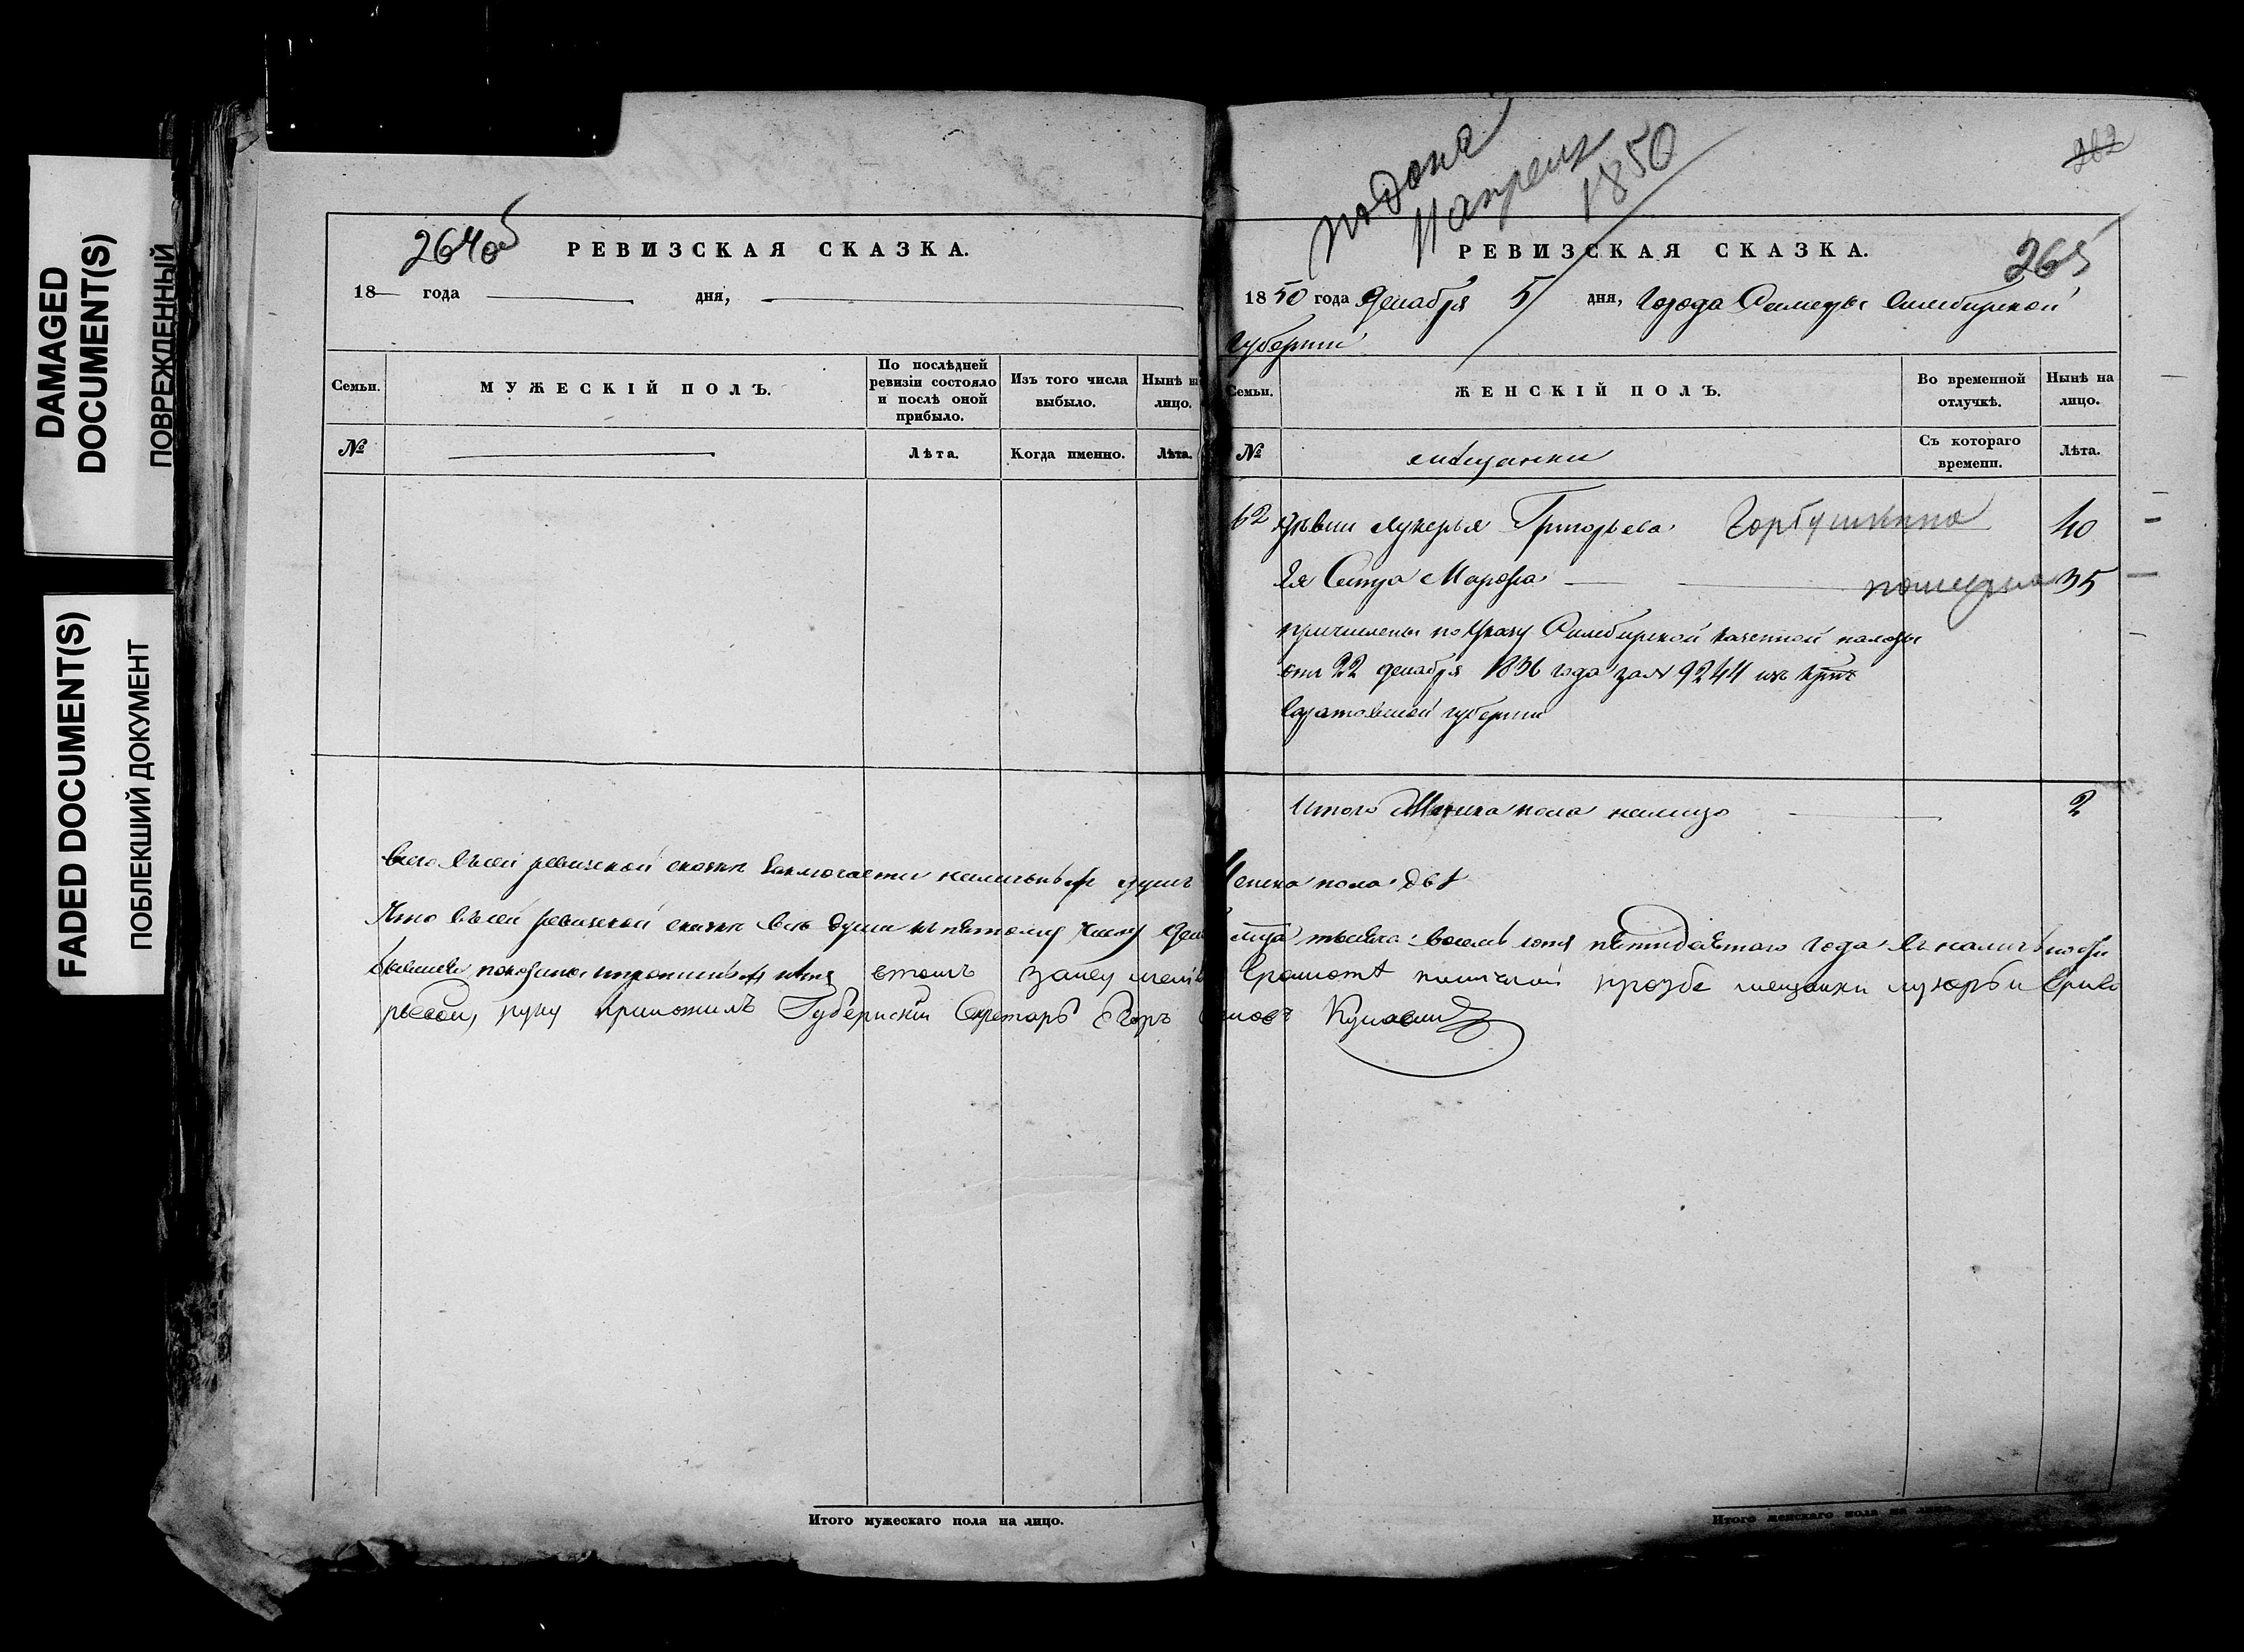 DAMAGED
DOCUMENT(S)
ПОВРЕЖДЕННЫЙ
FADED DOCUMENT(S)
ПОБЛЕКШИЙ ДОКУМЕНТ
264об
РЕВИЗСКАЯ СКАЗКА.
18 — года — дня, —
Семьи.
МУЖЕСКІЙ ПОЛЪ.
По послѣдней ревизіи состояло и послѣ оной прибыло.
Изъ того числа выбыло.
Нынѣ н лицо.
№
Лѣта.
Когда именно.
Лѣта.
подана
11 апреля
1850
262
265
РЕВИЗСКАЯ СКАЗКА.
1850 года Декабря 5 дня, Города Самары Симбирской
Губернии
Семьи.
ЖЕНСКІЙ ПОЛЪ.
Во временной отлучкѣ.
Нынѣ на лицо.
№
мѣщанки
Съ котораго времени.
Лѣта.
62 Лукерья Григорьева Горбушкина 40
Ея Сестра Марфа — 35
причислены по Указу Симбирской казенной палаты
отъ 22 декабря 1836 года за № 9244 изъ
Саратовской губернии
Итого Женска пола налицо — 2
Всего въ сей ревизской сказке заключается наличныхъ душъ Женска пола двѣ
Что въ сей ревизской сказке все души къ пятому числу тысяча восемь сотъ пятидесятаго года въ
показаны въ томъ грамоте прозбе мещанки лукерьи Григо
рьевой, руку приложилъ Губернский Секретарь Егоръ
Итого мужескаго пола на лицо.
Итого женскаго пола на лицо.